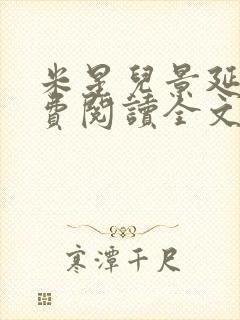 米星兒景延
費閱讀全文
寒潭千尺